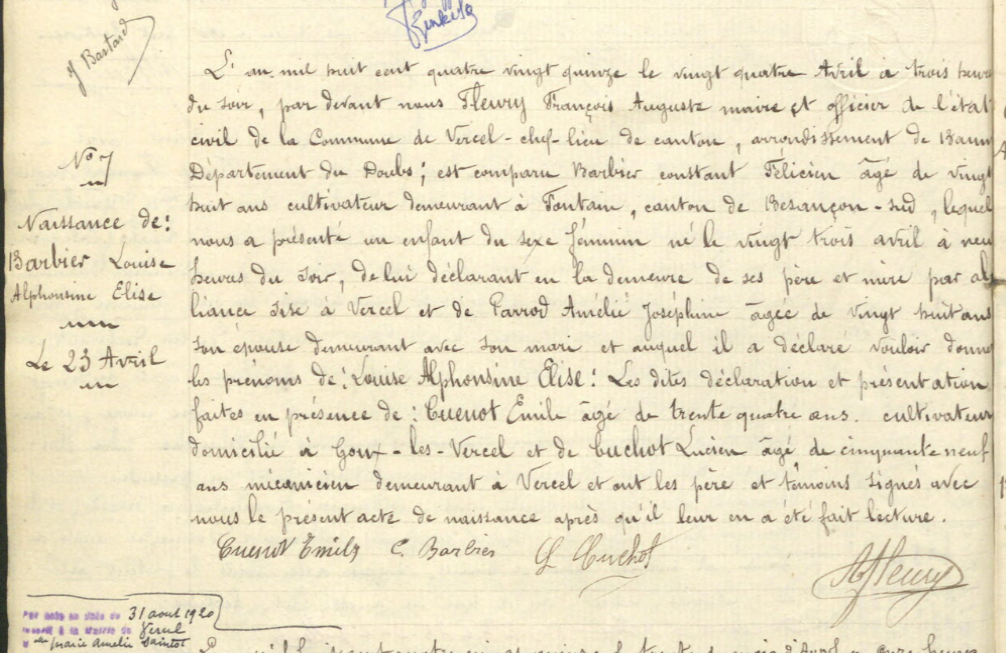 J Bastard
L'an mil huit cent quatre vingt quinze le vingt quatre Avril à trois heures
du soir, par devant nous Fleury François Auguste maire et officier de l'état
civil de la Commune de Vercel-chef-lieu de canton, arrondissement de Baume
Département du Doubs; est comparu Barbier constant Félicien âgé de vingt
huit ans cultivateur demeurant à Fontain, canton de Besançon-sud, lequel
nous a présenté un enfant du sexe féminin né le vingt trois avril à neuf
heures du soir, de lui déclarant en la demeure de ses père et mère par al
liance sise à Vercel et de Parrod Amélie Joséphine âgée de vingt huit ans
son épouse demeurant avec son mari et auquel il a déclaré vouloir donner
les prénoms de: Louise Alphonsine Elise: Les dites déclaration et présentation
faites en présence de: Cuenot Emile âgé de trente quatre ans. cultivateur
domicilié à Goux-les-Vercel et de Cuchot Lucien âgé de cinquante neuf
ans mécanicien demeurant à Vercel et ont les père et témoins signés avec
nous le présent acte de naissance après qu'il leur en a été fait lecture.
Cuenot Emile C Barbier L Cuchot
Afleury
No 7
Naissance de:
Barbier Louise
Alphonsine Elise
Le 23 Avril
31 aout 1920
Vercel
marie Amelie